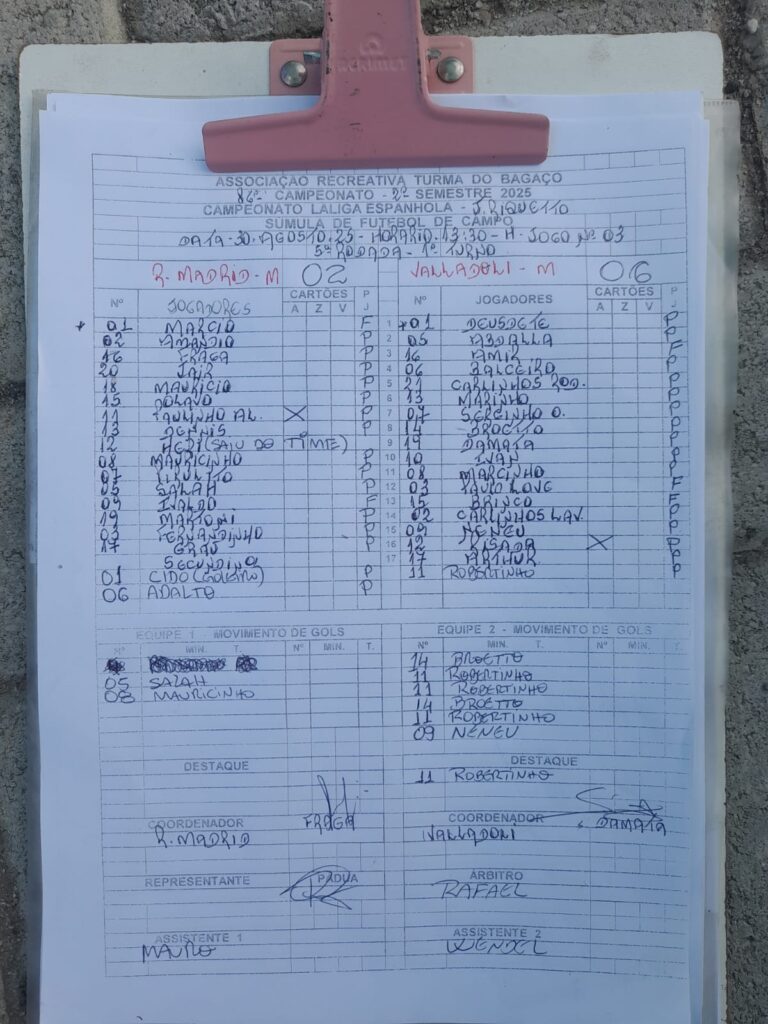 ASSOCIAÇÃO RECREATIVA TURMA DO BAGAÇO
86º CAMPEONATO - 2º SEMESTRE 2025
CAMPEONATO LALIGA ESPANHOLA - J. RIQUETTO
SÚMULA DE FUTEBOL DE CAMPO
DATA - 30. AGOSTO. 25 - HORARIO. 13:30 - H - JOGO Nº 03
5ª RODADA - 1º TURNO
R. MADRID - M 02 VALLADOLI - M 06
Nº JOGADORES CARTÕES A Z V P J Nº JOGADORES CARTÕES A Z V P J
01 MARCIO F 1 01 DEUSDETE P
02 AMANDIO P 2 05 ABDALLA P
16 FRAGA P 3 16 AMIR F
20 JAIR P 4 06 BALCEIRO P
18 MAURICIO P 5 21 CARLINHOS ROD. P
15 POLAVO P 6 13 MARINHO P
11 PAULINHO AL. X P 7 07 SERGINHO O. P
13 DENNIS P 8 14 BROETTO P
12 HEDI (SAIU DO TIME) 9 19 DAMATA P
08 MAURICINHO P 10 10 IVAN P
07 P 11 08 MARCINHO F
05 SALAH P 12 03 PAULO LOVE F
09 IVALDO F 13 15 BRINCO P
19 MARTONI P 14 02 CARLINHOS LAV. P
03 FERNANDINHO P 15 09 NENEU P
17 GRAU P 16 12 PISADA X P
SECUNDINO 17 17 ARTHUR P
01 CIDO (GOLEIRO) P 11 ROBERTINHO P
06 ADALTO P
EQUIPE 1 - MOVIMENTO DE GOLS EQUIPE 2 - MOVIMENTO DE GOLS
Nº MIN. T. Nº MIN. T. Nº MIN. T. Nº MIN. T.
14 BROETTO
05 SALAH 11 ROBERTINHO
08 MAURICINHO 11 ROBERTINHO
14 BROETTO
11 ROBERTINHO
09 NENEU
DESTAQUE DESTAQUE
11 ROBERTINHO
COORDENADOR FRAGA COORDENADOR DAMATA
R. MADRID VALLADONI
REPRESENTANTE PADUA ÁRBITRO
RAFAEL
ASSISTENTE 1 ASSISTENTE 2
MAURO WENDEL